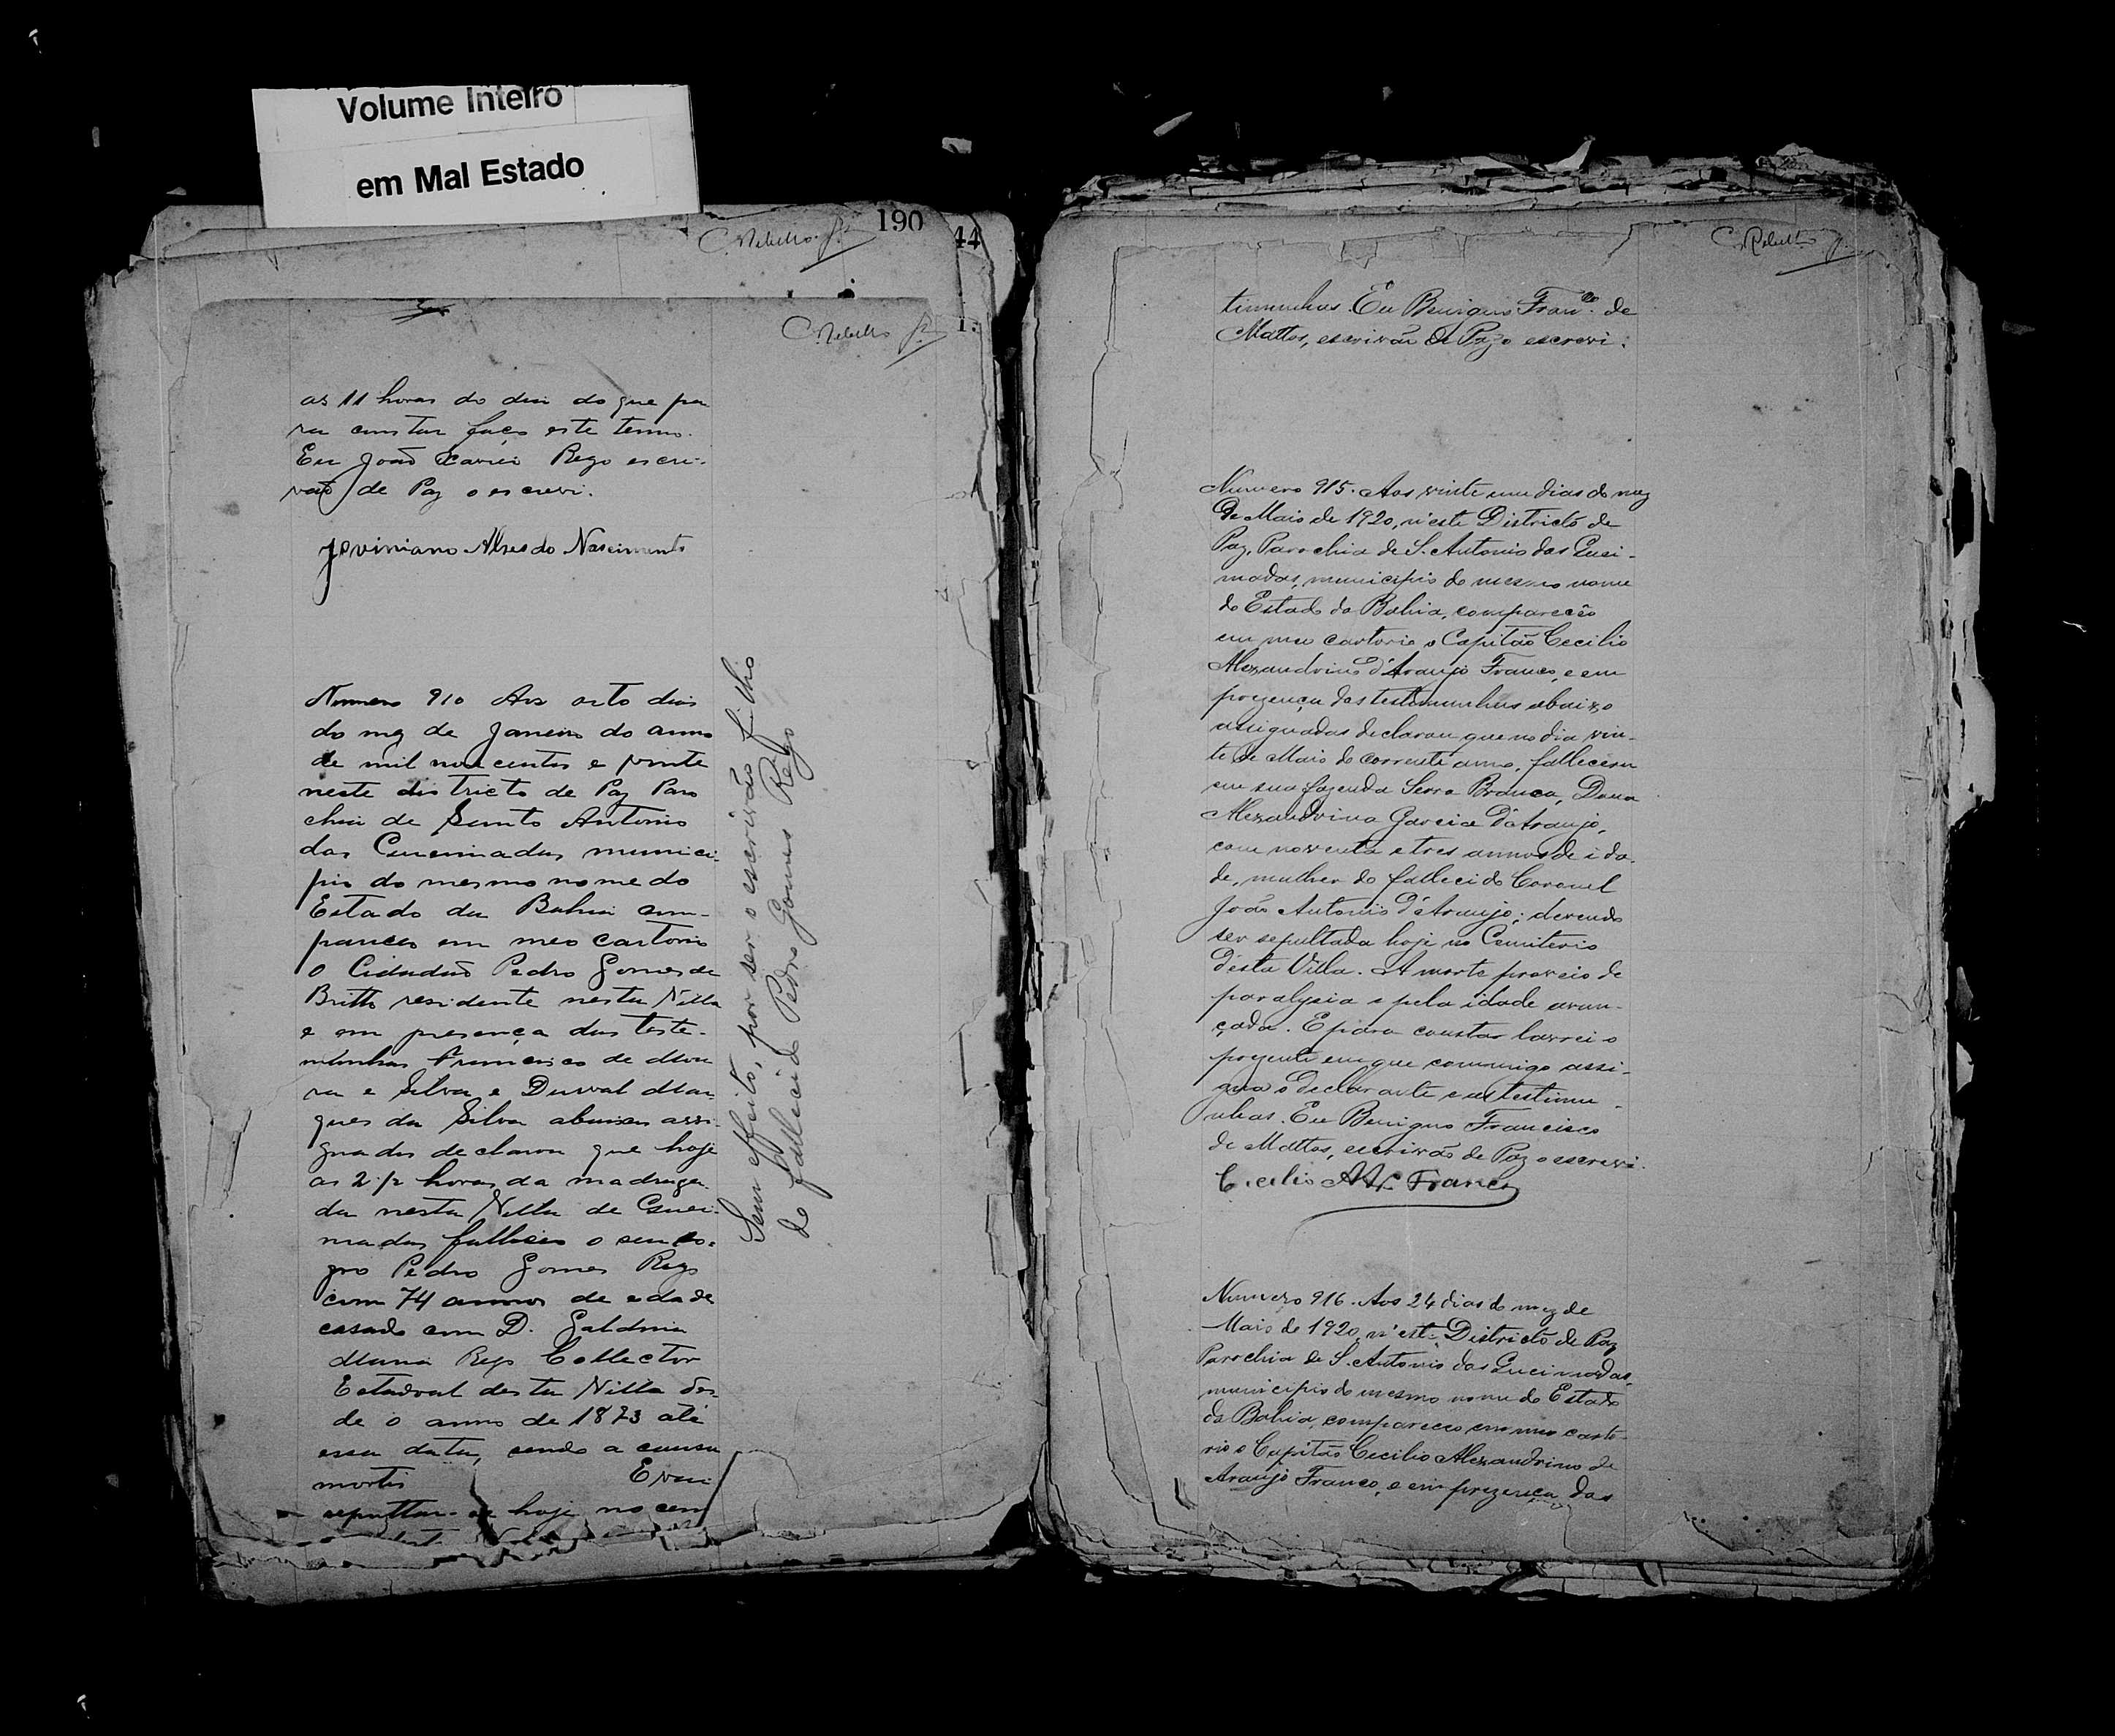 Volume Inteiro
em Mal Estado
190
44
C. Rebello Jr.
C. Rebello Jr.
as 11 horas do dia do que pa
ra constar faço este termo.
Eu João Xavier Rego escri-
vaõ de Paz o escrevi.
Joviniano Alves do Nascimento
Numero 910 Aos oito dias
do mez de Janeiro do anno
de mil nove centos e vinte
neste districto de Paz Paro
chia de Santo Antonio
das Queimadas munici
pio do mesmo nome do
Estado da Bahia com-
pareceo em meo cartorio
o Cidadaõ Pedro Gomes de
Britto residente nesta Villa
e em presença das teste-
munhas Francisco de Mou
ra e Silva e Durval Mar
ques da Silva abaixo assi
gnados declarou que hoje
as 2 1/2 horas da madruga
da nesta Villa de Quei-
madas falleceo o seu so-
gro Pedro Gomes Rego
com 74 annos de edade
casado com D. Galdina
Maria Rego Collector
Estadoal desta Villa des
de o anno de 1873 até
essa data, sendo a causa
mortis Evai
sepultar-se hoje no cem
Sem effeito, por ser o escrivão filho
do fallecido Pedro Gomes Rego
C. Rebello Jr.
timunhas. Eu Benigno Franco. de
Mattos, escrivão de Paz o escrevi.
Numero 915. Aos vinte um dias do mez
de Maio de 1920, n'este Districto de
Paz, Parochia de S. Antonio das Quei-
madas, municipio do mesmo nome
do Estado da Bahia, compareceo
em meu cartorio o Capitão Cecilio
Alexandrino d'Araujo Franco, e em
prezença das testimunhas abaixo
assignadas declarou que no dia vin-
te de Maio do corrente anno, falleceu
em sua fazenda Serra Branca, Dona
Alexandrina Garcia d'Araujo,
com noventa e tres annos de ida-
de, mulher do fallecido Coronel
João Antonio d'Araujo; devendo
ser sepultada hoje no Cemiterio
d'esta Villa. A morte proveio de
paralysia e pela idade avan-
çada. E para constar lavrei o
prezente em que commigo assi-
gna o declarante e as testimu-
nhas. Eu Benigno Francisco
de Mattos, escrivão de Paz o escrevi.
Cecilio Al. Franco
Numero 916. Aos 24 dias do mez de
Maio de 1920, n'este Districto de Paz
Parochia de S. Antonio das Queimadas,
municipio do mesmo nome do Estado
da Bahia, compareceo em meu carto-
rio o Capitão Cecilio Alexandrino de
Araujo Franco, e em prezença das